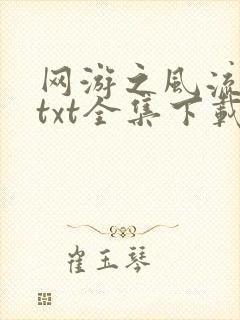 网游之风流
txt全集下载
崔玉琴